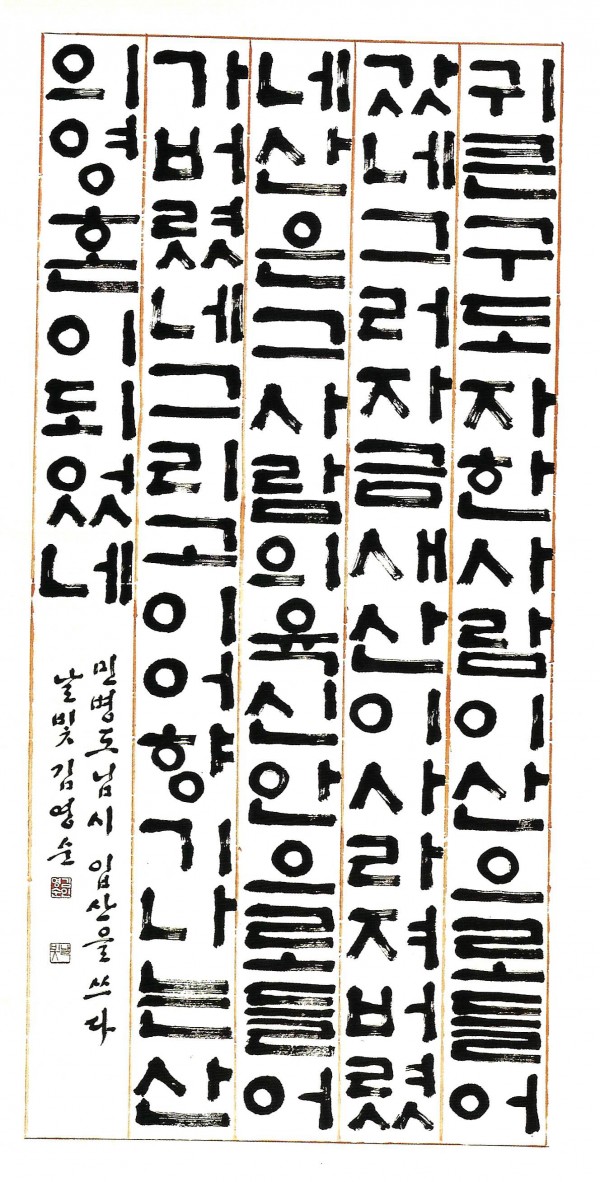 귀큰구도자한사람이산으로들어
갔네그러자금새산이사라져버렸
네산은그사람의육신안으로들어
가버렸네그리고이어향기나는산
의영혼이되었네
민병도님시 입산을 쓰다
날빛 김영순